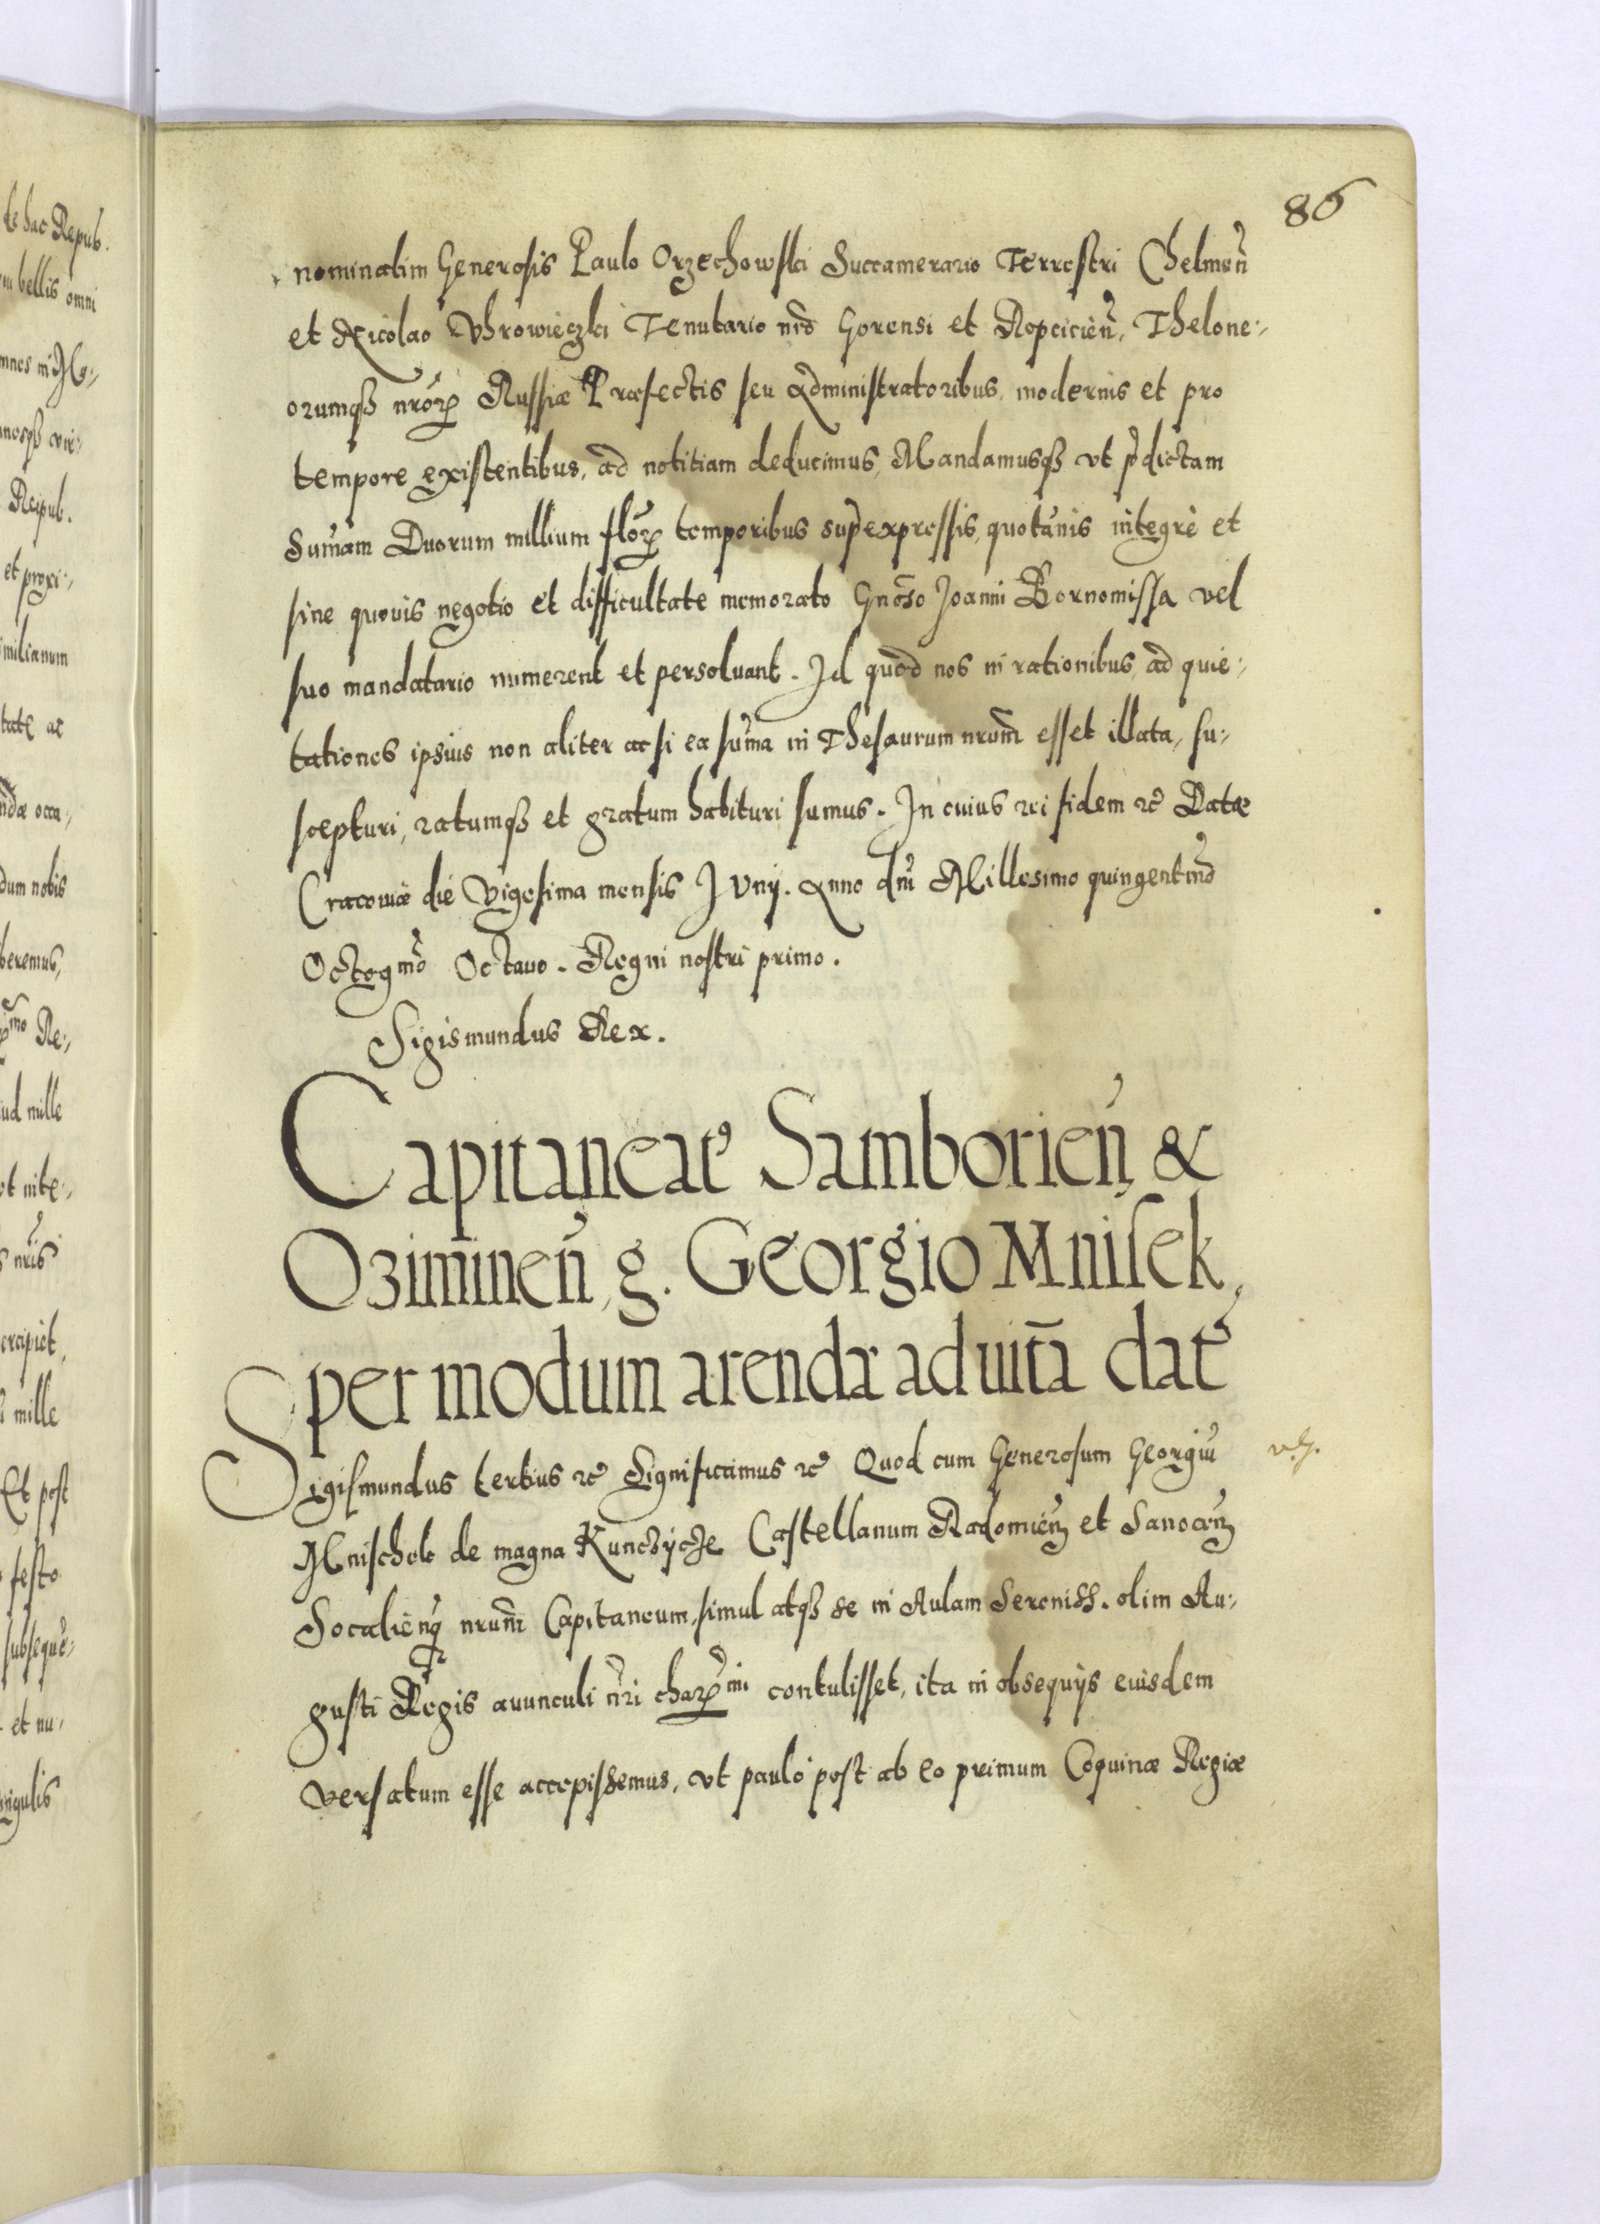 86
nominatim Generosis Paulo Orzechowski Succamerario Terrestri Chelmeñ
et Nicolao Vhrowieczki Tenutario nr̃o Gorensi et Ropcicieñ, Thelone-
orumqȝ nr̃orꝝ Russiæ Præfectis seu Administratoribus, modernis et pro
tempore existentibus, ad notitiam deducimus, Mandamusqȝ vt p̃dictam
Sum̃am Duorum millium flõrꝝ temporibus sup̃expressis, quotãnis integrè et
sine quouis negotio et difficultate memorato Gnõso Joanni Bornomissa vel
suo mandatario numerent et persoluant. Id quod nos in rationibus, ad quie-
tationes ipsius non aliter ac si ea sum̃a in Thesaurum nrũm esset illata, su-
scepturi, ratumqȝ et gratum habituri sumus. In cuius rei fidem &c̃ Datæ
Cracouiæ die Vigesima mensis Junij. Anno dñi Millesimo quingentmõ
Octogmõ Octauo. Regni nostri primo.
Sigismundus Rex.
Capitaneat' Samborieñ &
Oziminen̄, g. Georgio Mnisek,
per modum arendæ ad uitã dat'
Sigismundus tertius &c̃ Significamus &c̃ Quod cum Generosum Georgiũ
Mnischek de magna Kunczycze Castellanum Radomieñ et Sanoceñ
Socalieñqȝ nrũm Capitaneum, simul atqȝ se in Aulam Sereniss. olim Au-
gusti Regis auunculi ñri charꝝmi contulisset, ita in obsequijs eiusdem
versatum esse accepissemus, vt paulo post ab eo primum Coquinæ Regiæ